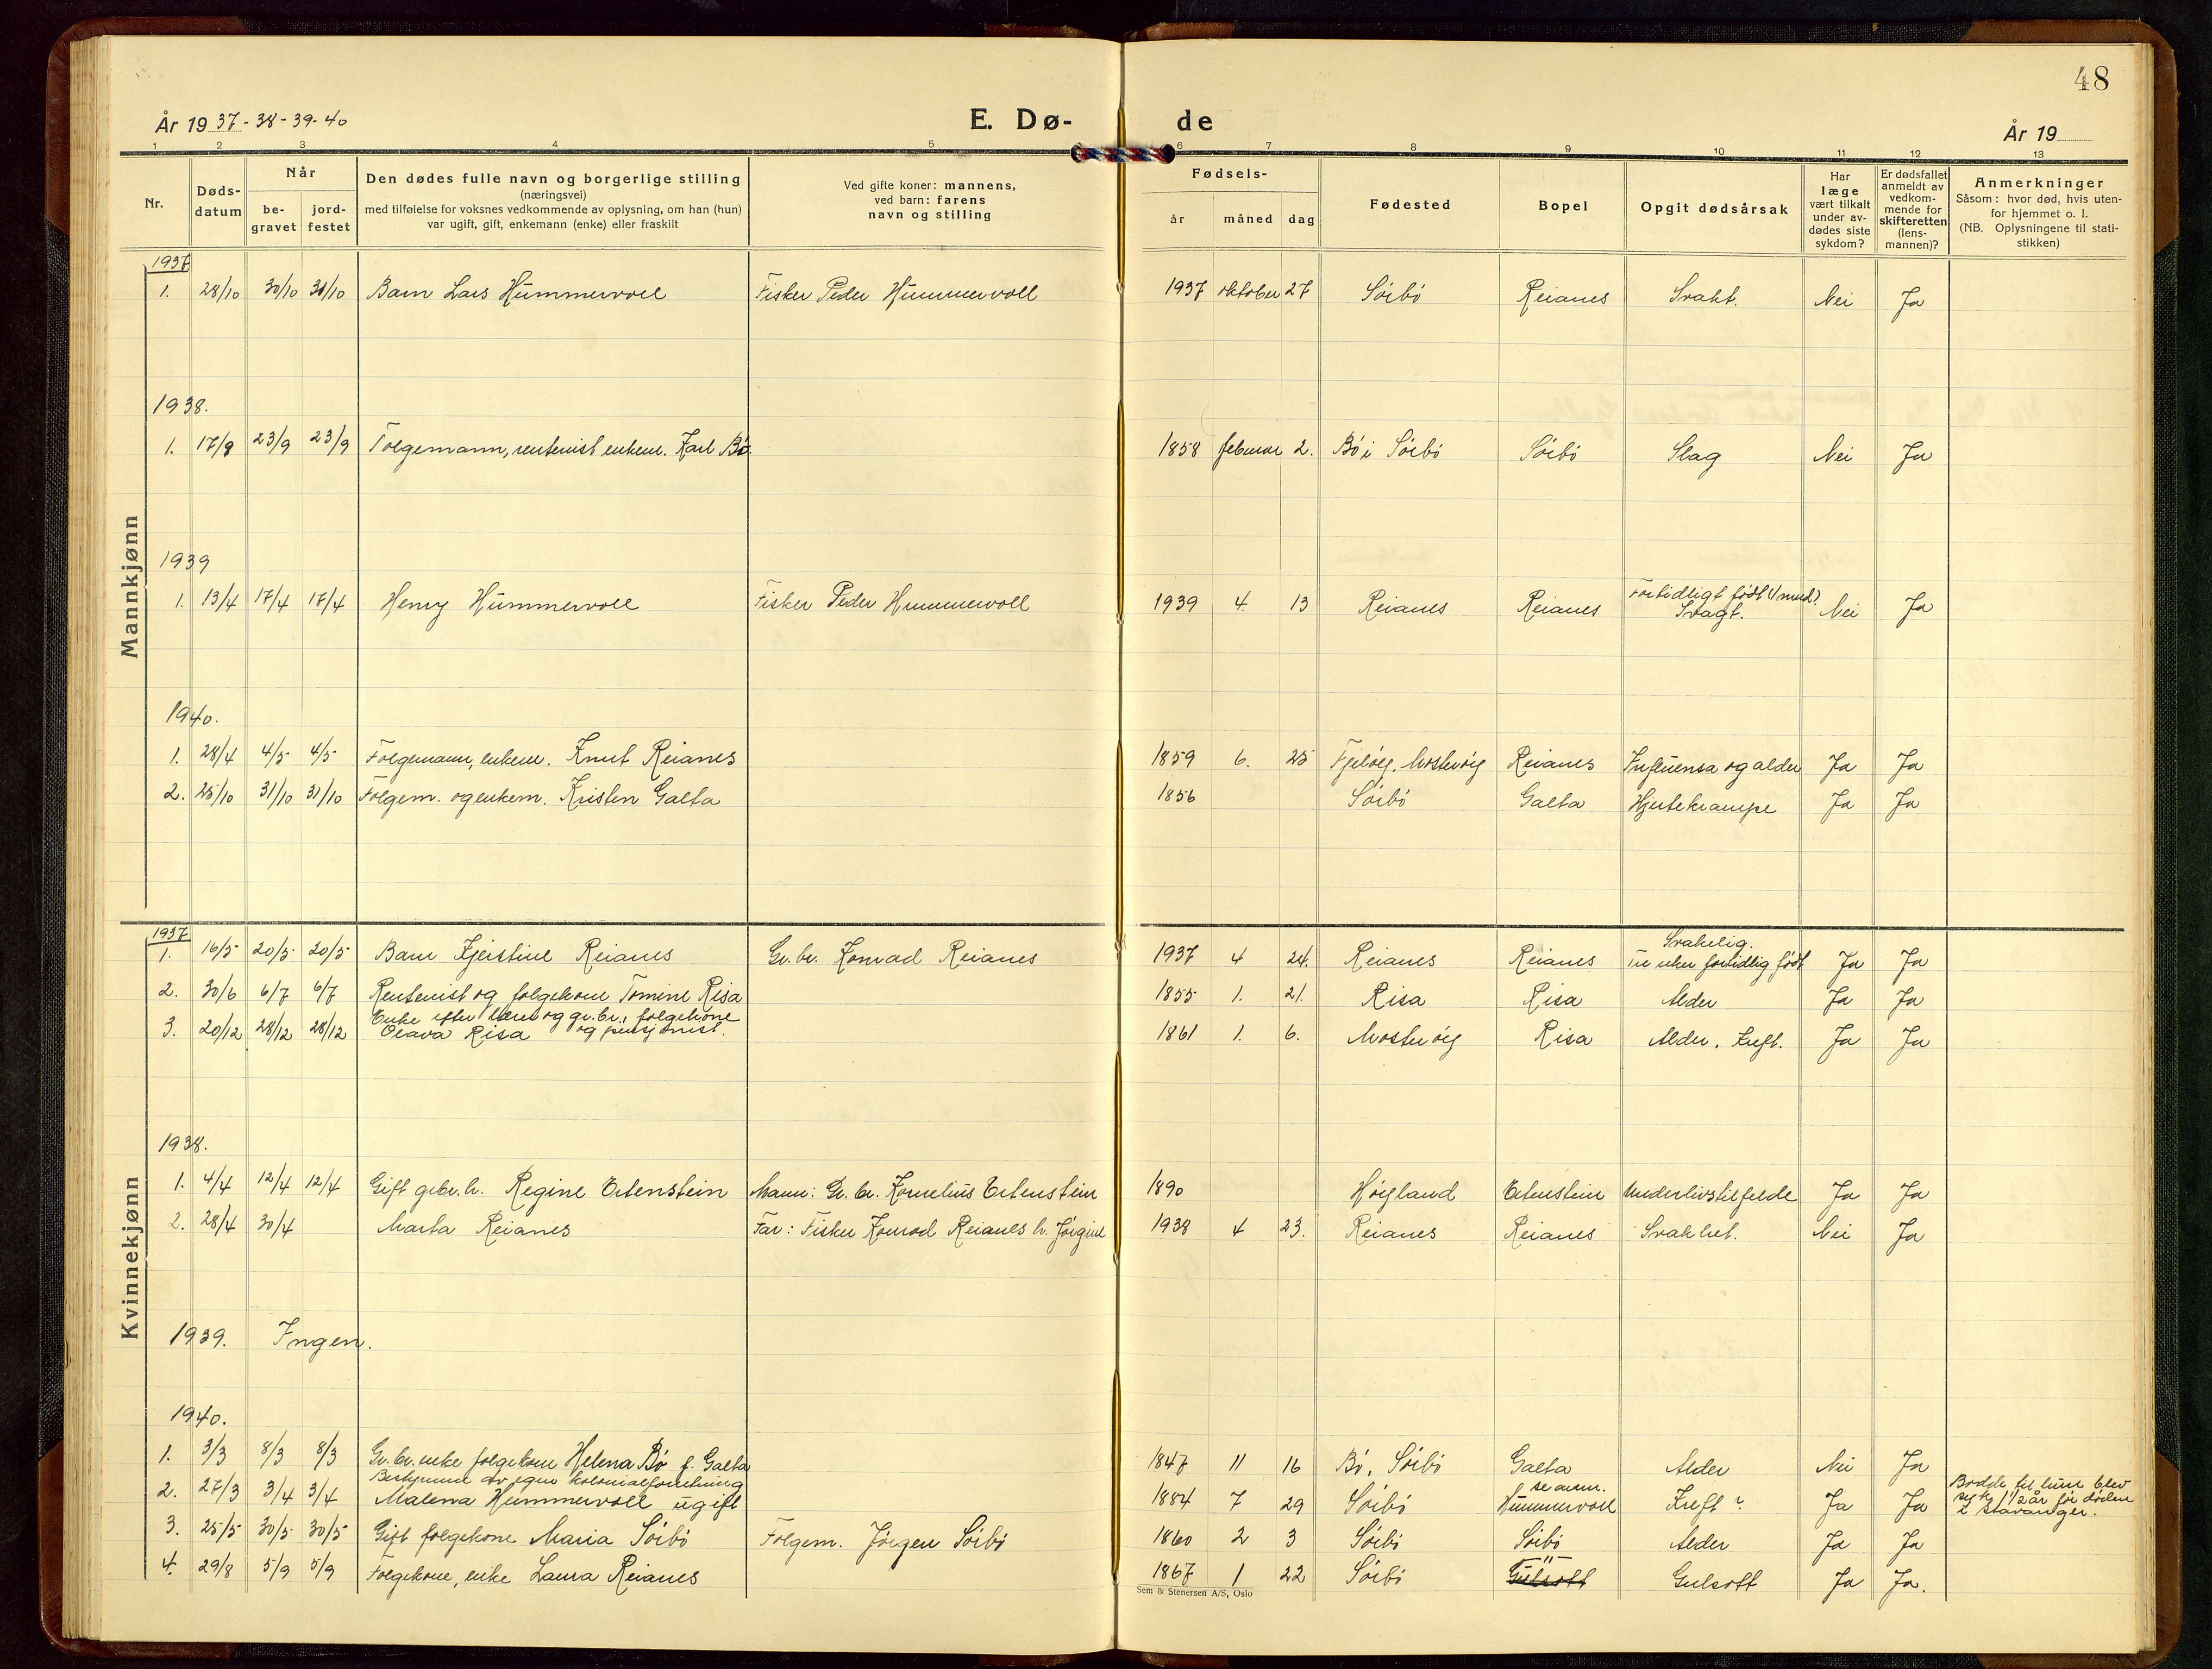 48
År 1937-38-39-40
E. Dø-
de
År 19
1 2 3 4 5 6 7 8 9 10 11 12 13
Nr.
Døds-
datum
Når
be-
gravet
jord-
festet
Den dødes fulle navn og borgerlige stilling
(næringsvei)
med tilføielse for voksnes vedkommende av oplysning, om han (hun)
var ugift, gift, enkemann (enke) eller fraskilt
Ved gifte koner: mannens,
ved barn: farens
navn og stilling
Fødsels-
år måned dag
Fødested
Bopel
Opgit dødsårsak
Har
læge
vært tilkalt
under av-
dødes siste
sykdom?
Er dødsfallet
anmeldt av
vedkom-
mende for
skifteretten
(lens-
mannen)?
Anmerkninger
Såsom: hvor død, hvis uten-
for hjemmet o. l.
(NB. Oplysningene til stati-
stikken)
Mannkjønn
1937
1. 28/10 30/10 30/10 Barn Lars Hummervoll Fisker Peder Hummervoll 1937 oktober 27 Sörbö Reianes Svakt. Nei Ja
1938.
1. 17/9 23/9 23/9 Folgemann, rentenist enkem. Karl Bö. 1858 februar 2. Bö i Sörbö Sörbö Slag Nei Ja
1939
1. 13/4 17/4 17/4 Henry Hummervoll Fisker Peder Hummervoll 1939 4. 13 Reianes Reianes Fortidligt född Svagt. Nei Ja
1940.
1. 28/4 4/5 4/5 Folgemann, enkem. Knut Reianes 1859 6. 25 Fjelöy, Mosteröy Reianes Influensa og alder Ja Ja
2. 25/10 31/10 31/10 Folgem. og enkem. Kristen Galta 1856 Sörbö Galta Hjertekrampe Ja Ja
Kvinnekjønn
1937
1. 16/5 20/5 20/5 Barn Kjerstine Reianes Gr. br. Konrad Reianes 1937 4 24. Reianes Reianes Svakelig. uker fortidlig födt Ja Ja
2. 30/6 6/7 6/7 Rentenist og folgekone Tomine Risa 1855 1. 21. Risa Risa Alder Ja Ja
3. 20/12 28/12 28/12 Enke efter lærer og gr. br., folgekone
Olava Risa og pensjonist. 1861 1. 6. Mosteröy Risa Alder, Kreft. Ja Ja
1938.
1. 4/4 12/4 12/4 Gift grbr.h. Regine Ertenstein Mann: Gr. br. Kornelius Ertenstein 1890 Höigland Ertenstein Underlivstilfelde Ja Ja
2. 28/4 30/4 Marta Reianes Far: Fisker Konrad Reianes h. Jörgine 1938 4 23. Reianes Reianes Svakhet. Nei Ja
1939. Ingen.
1940.
1. 3/3 8/3 8/3 Gr. br. enke folgekone Helena Bö f. Galta 1847 11 16 Bö, Sörbö Galta Alder Nei Ja
2. 27/3 3/4 3/4 Bestyrerinne av egen kolonialforretning
Malena Hummervoll ugift 1884 7 29 Sörbö se anm. Hummervoll Kreft? Ja Ja Bodde til hun blev
syk 1 1/2 år för döden
i Stavanger.
3. 25/5 30/5 30/5 Gift folgekone Maria Sörbö Folgem. Jörgen Sörbö 1860 2 3 Sörbö Sörbö Alder Ja Ja
4. 29/8 5/9 5/9 Folgekone, enke Laura Reianes 1867 1 22 Sörbö –"– Gulsott Gulsott Ja Ja.
Sem & Stenersen A/S, Oslo